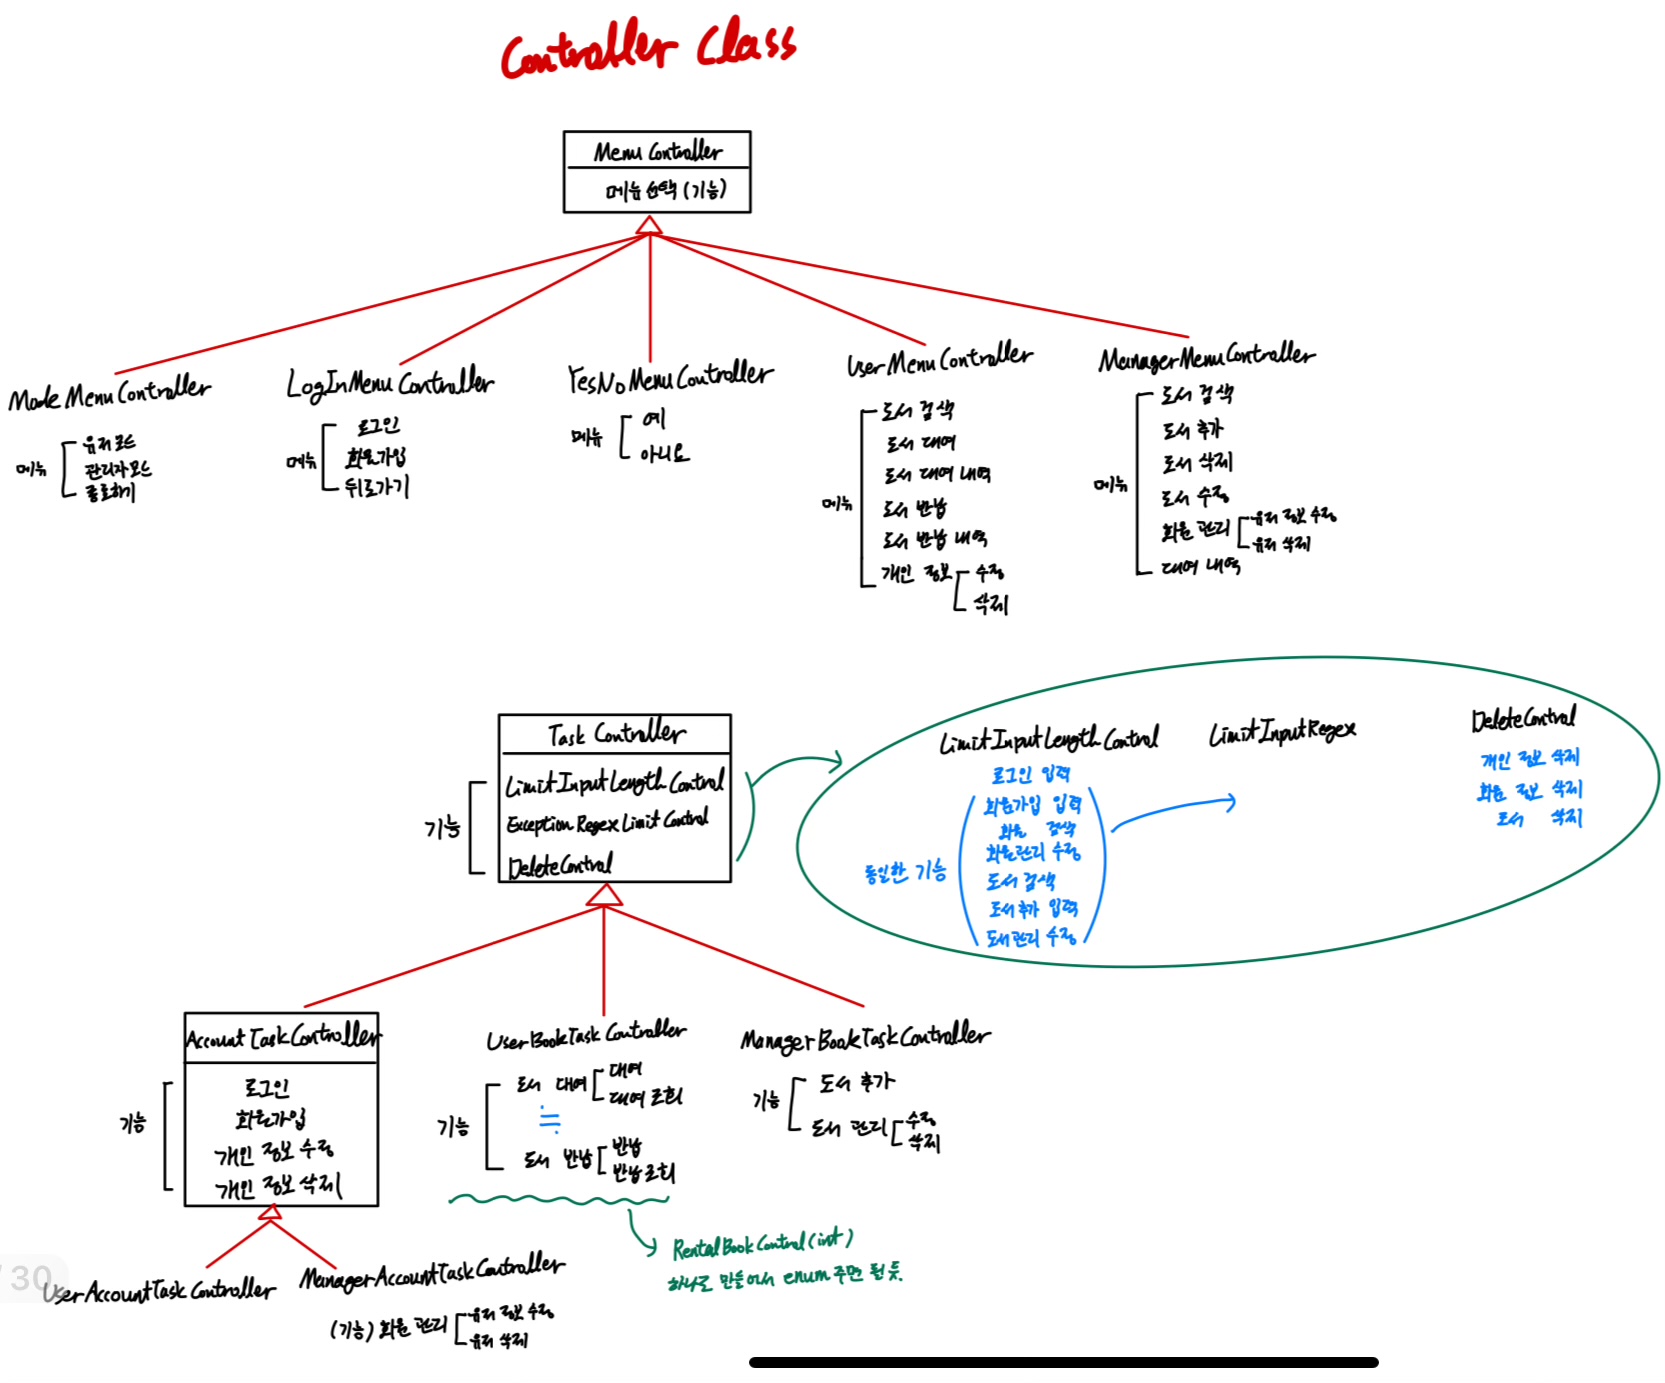 Controller Class
Menu Controller
메뉴 선택 (기능)
Mode Menu Controller
메뉴
유저모드
관리자모드
종료하기
LogInMenu Controller
메뉴
로그인
회원가입
뒤로가기
YesNo Menu Controller
메뉴
예
아니요
User Menu Controller
메뉴
도서 검색
도서 대여
도서 대여 내역
도서 반납
도서 반납 내역
개인 정보
수정
삭제
Manager Menu Controller
메뉴
도서 검색
도서 추가
도서 삭제
도서 수정
회원 관리
유저 정보 수정
유저 삭제
대여 내역
Task Controller
기능
LimitInputLength Control
Exception Regex Limit Control
DeleteControl
LimitInputLength Control
로그인 입력
동일한 기능
회원가입 입력
회원 검색
회원관리 수정
도서 검색
도서추가 입력
도서관리 수정
LimitInputRegex
DeleteControl
개인 정보 삭제
회원 정보 삭제
도서 삭제
Account Task Controller
기능
로그인
회원가입
개인 정보 수정
개인 정보 삭제
UserBookTask Controller
기능
도서 대여
대여
대여 조회
≒
도서 반납
반납
반납조회
RentalBookControl(int)
하나로 만들어서 enum 주면 될 듯.
Manager BookTask Controller
기능
도서 추가
도서 관리
수정
삭제
UserAccountTask Controller
ManagerAccountTaskController
(기능) 회원 관리
유저 정보 수정
유저 삭제
/ 30